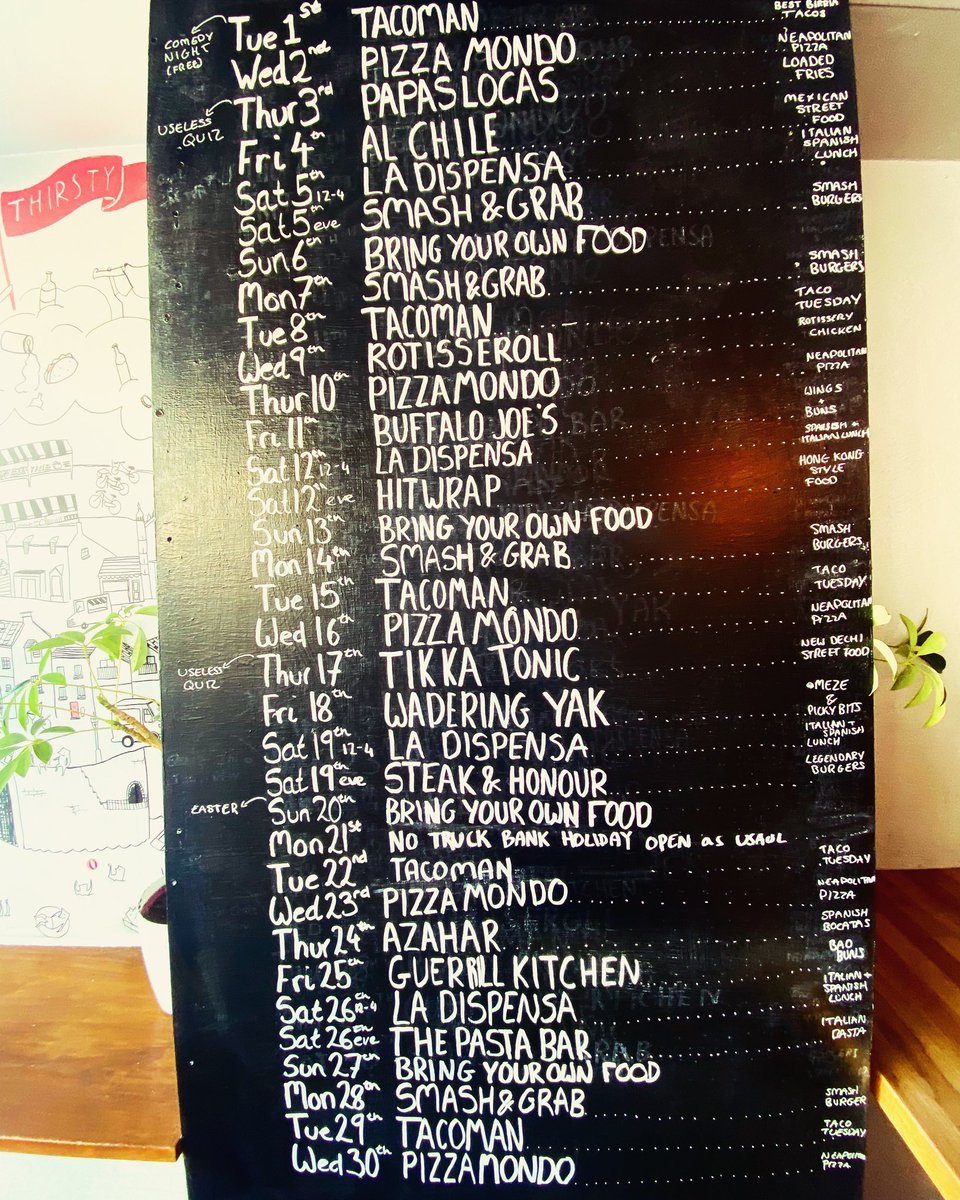 Tue 1st TACOMAN BEST BIRRIA TACOS
COMEDY NIGHT (FREE)
Wed 2nd PIZZA MONDO NEAPOLITAN PIZZA
Thur 3rd PAPAS LOCAS LOADED FRIES
USELESS QUIZ
Fri 4th AL CHILE MEXICAN STREET FOOD
Sat 5th 12-4 LA DISPENSA ITALIAN SPANISH LUNCH
Sat 5th eve SMASH & GRAB SMASH BURGERS
THIRSTY
Sun 6th BRING YOUR OWN FOOD
Mon 7th SMASH & GRAB SMASH BURGERS
Tue 8th TACOMAN TACO TUESDAY
Wed 9th ROTISSEROLL ROTISSERY CHICKEN
Thur 10th PIZZA MONDO NEAPOLITAN PIZZA
Fri 11th BUFFALO JOE'S WINGS + BUNS
Sat 12th 12-4 LA DISPENSA SPANISH + ITALIAN LUNCH
Sat 12th eve HITWRAP HONG KONG STYLE FOOD
Sun 13th BRING YOUR OWN FOOD
Mon 14th SMASH & GRAB SMASH BURGERS
Tue 15th TACOMAN TACO TUESDAY
Wed 16th PIZZA MONDO NEAPOLITAN PIZZA
Thur 17th TIKKA TONIC NEW DELHI STREET FOOD
USELESS QUIZ
Fri 18th WADERING YAK MEZE & PICKY BITS
Sat 19th 12-4 LA DISPENSA ITALIAN + SPANISH LUNCH
Sat 19th eve STEAK & HONOUR LEGENDARY BURGERS
EASTER Sun 20th BRING YOUR OWN FOOD
Mon 21st NO TRUCK BANK HOLIDAY OPEN as USAUL
Tue 22nd TACOMAN TACO TUESDAY
Wed 23rd PIZZA MONDO NEAPOLITAN PIZZA
Thur 24th AZAHAR SPANISH BOCATAS
Fri 25th GUERRILL KITCHEN BAO BUNS
Sat 26th 12-4 LA DISPENSA ITALIAN + SPANISH LUNCH
Sat 26th eve THE PASTA BAR ITALIAN PASTA
Sun 27th BRING YOUR OWN FOOD
Mon 28th SMASH & GRAB SMASH BURGER
Tue 29th TACOMAN TACO TUESDAY
Wed 30th PIZZA MONDO NEAPOLITAN PIZZA